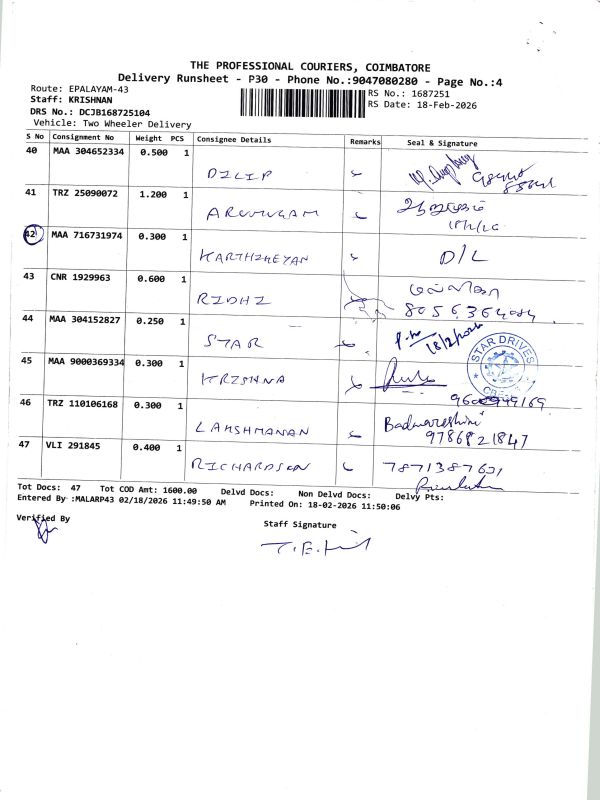 THE PROFESSIONAL COURIERS, COIMBATORE
Delivery Runsheet - P30 - Phone No.:9047080280 - Page No.:4
Route: EPALAYAM-43
RS No.: 1687251
Staff: KRISHNAN
RS Date: 18-Feb-2026
DRS No.: DCJB168725104
Vehicle: Two Wheeler Delivery
S No Consignment No Weight PCS Consignee Details Remarks Seal & Signature
40 MAA 304652334 0.500 1
DILIP
41 TRZ 25090072 1.200 1
ARUMUGAM
42 MAA 716731974 0.300 1
KARTHIKEYAN D/L
43 CNR 1929963 0.600 1
RIDHI
44 MAA 304152827 0.250 1
STAR 18/2/2026
STAR DRIVES
45 MAA 9000369334 0.300 1
KRISHNA
46 TRZ 110106168 0.300 1
LAKSHMANAN 9786821847
47 VLI 291845 0.400 1
RICHARDSON 7871387631
Tot Docs: 47 Tot COD Amt: 1600.00 Delvd Docs: Non Delvd Docs: Delvy Pts:
Entered By :MALARP43 02/18/2026 11:49:50 AM Printed On: 18-02-2026 11:50:06
Verified By
Staff Signature